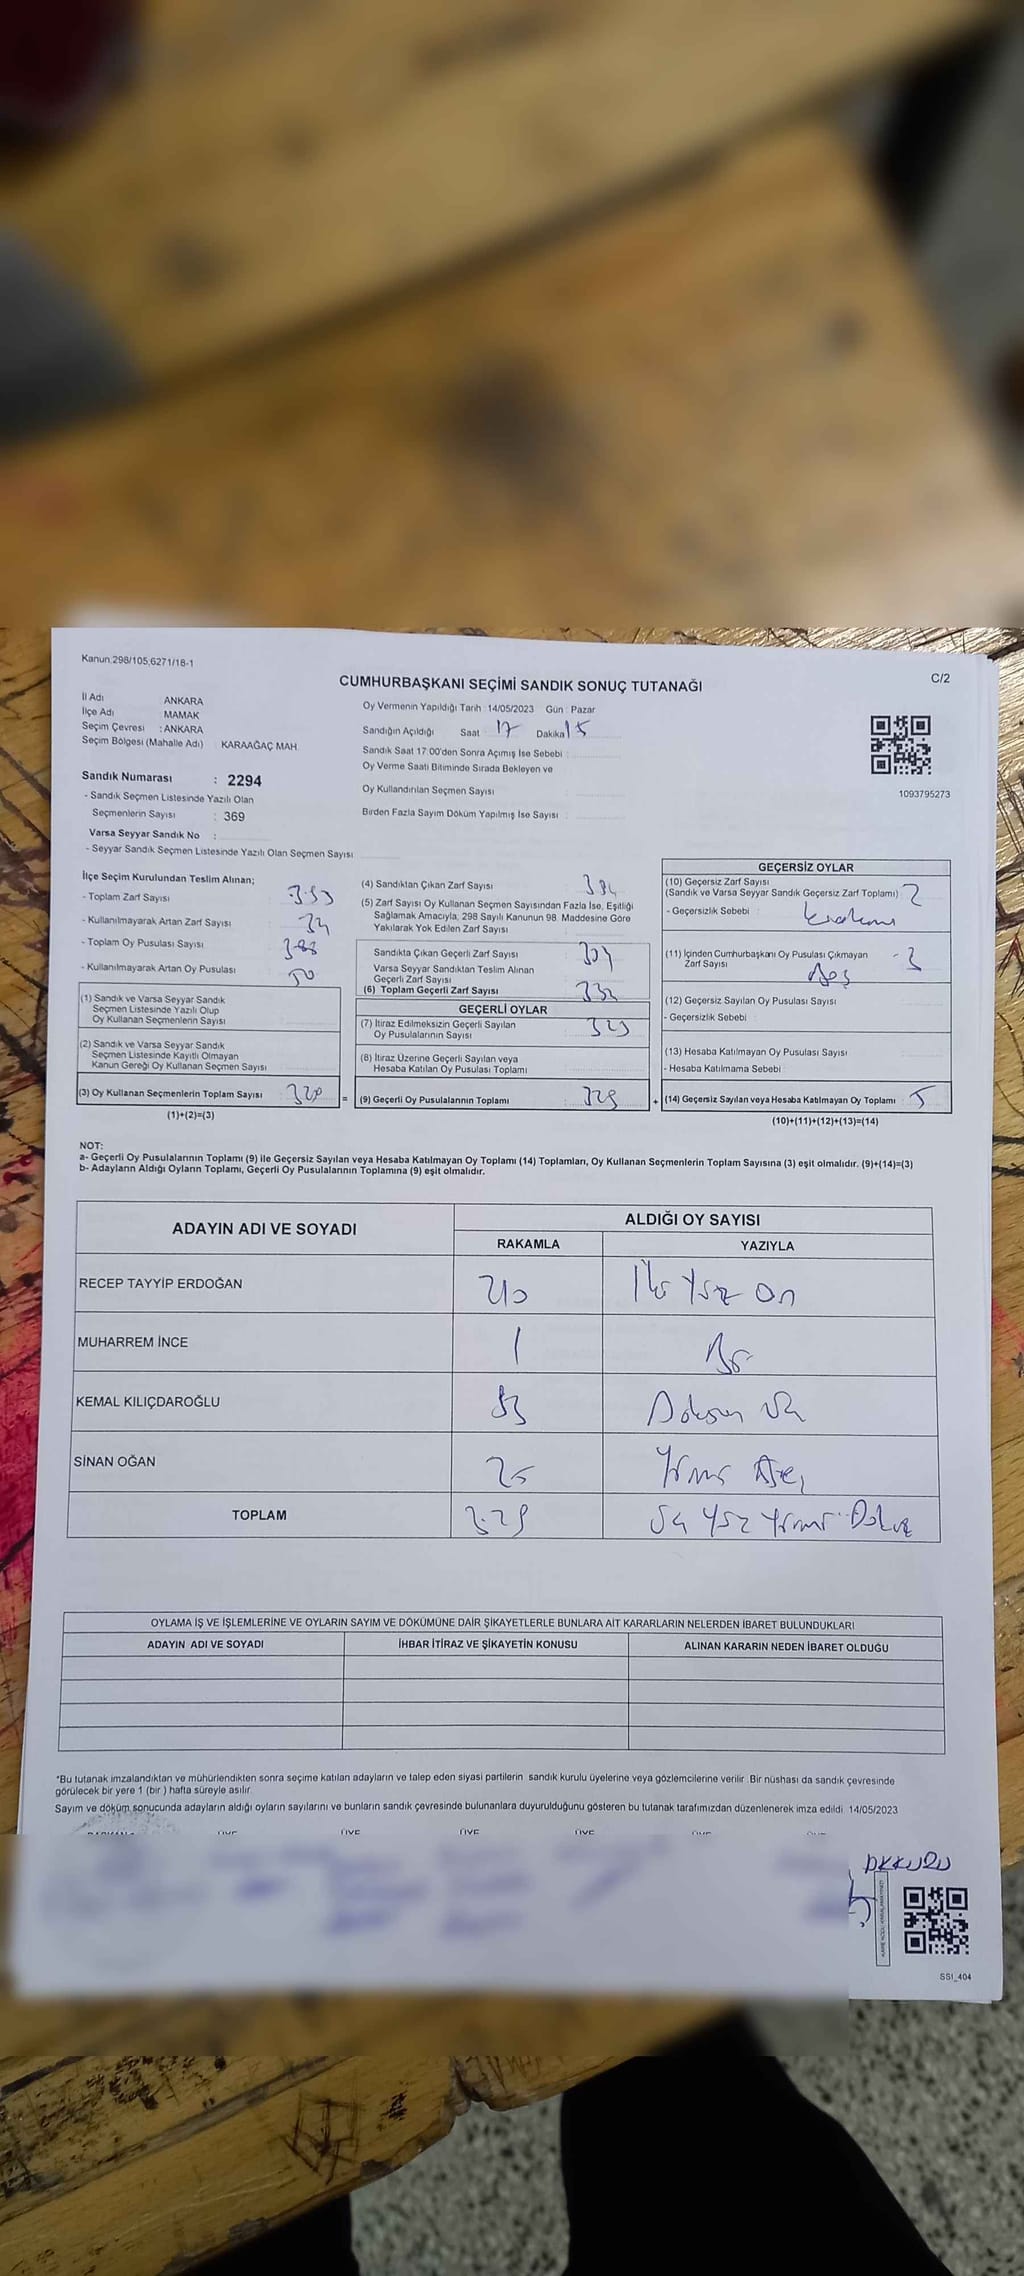 Kanun.298/105,6271/18-1
C/2
CUMHURBAŞKANI SEÇİMİ SANDIK SONUÇ TUTANAĞI
İl Adı : ANKARA
İlçe Adı : MAMAK
Seçim Çevresi : ANKARA
Seçim Bölgesi (Mahalle Adı) : KARAAĞAÇ MAH.
Sandık Numarası : 2294
- Sandık Seçmen Listesinde Yazılı Olan
Seçmenlerin Sayısı : 369
Varsa Seyyar Sandık No :
- Seyyar Sandık Seçmen Listesinde Yazılı Olan Seçmen Sayısı
Oy Vermenin Yapıldığı Tarih : 14/05/2023 Gün : Pazar
Sandığın Açıldığı Saat 17 Dakika 15
Sandık Saat 17:00'den Sonra Açımış İse Sebebi :
Oy Verme Saati Bitiminde Sırada Bekleyen ve
Oy Kullandırılan Seçmen Sayısı :
Birden Fazla Sayım Döküm Yapılmış İse Sayısı :
1093795273
İlçe Seçim Kurulundan Teslim Alınan;
- Toplam Zarf Sayısı :
- Kullanılmayarak Artan Zarf Sayısı :
- Toplam Oy Pusulası Sayısı :
- Kullanılmayarak Artan Oy Pusulası :
(1) Sandık ve Varsa Seyyar Sandık
Seçmen Listesinde Yazılı Olup
Oy Kullanan Seçmenlerin Sayısı :
(2) Sandık ve Varsa Seyyar Sandık
Seçmen Listesinde Kayıtlı Olmayan
Kanun Gereği Oy Kullanan Seçmen Sayısı :
(3) Oy Kullanan Seçmenlerin Toplam Sayısı :
(1)+(2)=(3)
=
(4) Sandıktan Çıkan Zarf Sayısı :
(5) Zarf Sayısı Oy Kullanan Seçmen Sayısından Fazla İse, Eşitliği
Sağlamak Amacıyla, 298 Sayılı Kanunun 98. Maddesine Göre
Yakılarak Yok Edilen Zarf Sayısı :
Sandıkta Çıkan Geçerli Zarf Sayısı :
Varsa Seyyar Sandıktan Teslim Alınan
Geçerli Zarf Sayısı
(6) Toplam Geçerli Zarf Sayısı :
GEÇERLİ OYLAR
(7) İtiraz Edilmeksizin Geçerli Sayılan
Oy Pusulalarının Sayısı : 329
(8) İtiraz Üzerine Geçerli Sayılan veya
Hesaba Katılan Oy Pusulası Toplamı :
(9) Geçerli Oy Pusulalarının Toplamı : 329
+
GEÇERSİZ OYLAR
(10) Geçersiz Zarf Sayısı
(Sandık ve Varsa Seyyar Sandık Geçersiz Zarf Toplamı) 2
- Geçersizlik Sebebi :
(11) İçinden Cumhurbaşkanı Oy Pusulası Çıkmayan
Zarf Sayısı 3
Boş
(12) Geçersiz Sayılan Oy Pusulası Sayısı :
- Geçersizlik Sebebi :
(13) Hesaba Katılmayan Oy Pusulası Sayısı :
- Hesaba Katılmama Sebebi :
(14) Geçersiz Sayılan veya Hesaba Katılmayan Oy Toplamı : 5
(10)+(11)+(12)+(13)=(14)
NOT:
a- Geçerli Oy Pusulalarının Toplamı (9) ile Geçersiz Sayılan veya Hesaba Katılmayan Oy Toplamı (14) Toplamları, Oy Kullanan Seçmenlerin Toplam Sayısına (3) eşit olmalıdır. (9)+(14)=(3)
b- Adayların Aldığı Oyların Toplamı, Geçerli Oy Pusulalarının Toplamına (9) eşit olmalıdır.
ADAYIN ADI VE SOYADI
ALDIĞI OY SAYISI
RAKAMLA YAZIYLA
RECEP TAYYİP ERDOĞAN 210 İki Yüz On
MUHARREM İNCE 1 Bir
KEMAL KILIÇDAROĞLU 93 Doksan Üç
SİNAN OĞAN 25 Yirmi Beş
TOPLAM 329 Üç Yüz Yirmi Dokuz
OYLAMA İŞ VE İŞLEMLERİNE VE OYLARIN SAYIM VE DÖKÜMÜNE DAİR ŞİKAYETLERLE BUNLARA AİT KARARLARIN NELERDEN İBARET BULUNDUKLARI
ADAYIN ADI VE SOYADI İHBAR İTİRAZ VE ŞİKAYETİN KONUSU ALINAN KARARIN NEDEN İBARET OLDUĞU
*Bu tutanak imzalandıktan ve mühürlendikten sonra seçime katılan adayların ve talep eden siyasi partilerin sandık kurulu üyelerine veya gözlemcilerine verilir. Bir nüshası da sandık çevresinde
görülecek bir yere 1 (bir ) hafta süreyle asılır.
Sayım ve döküm sonucunda adayların aldığı oyların sayılarını ve bunların sandık çevresinde bulunanlara duyurulduğunu gösteren bu tutanak tarafımızdan düzenlenerek imza edildi. 14/05/2023
SSI_404